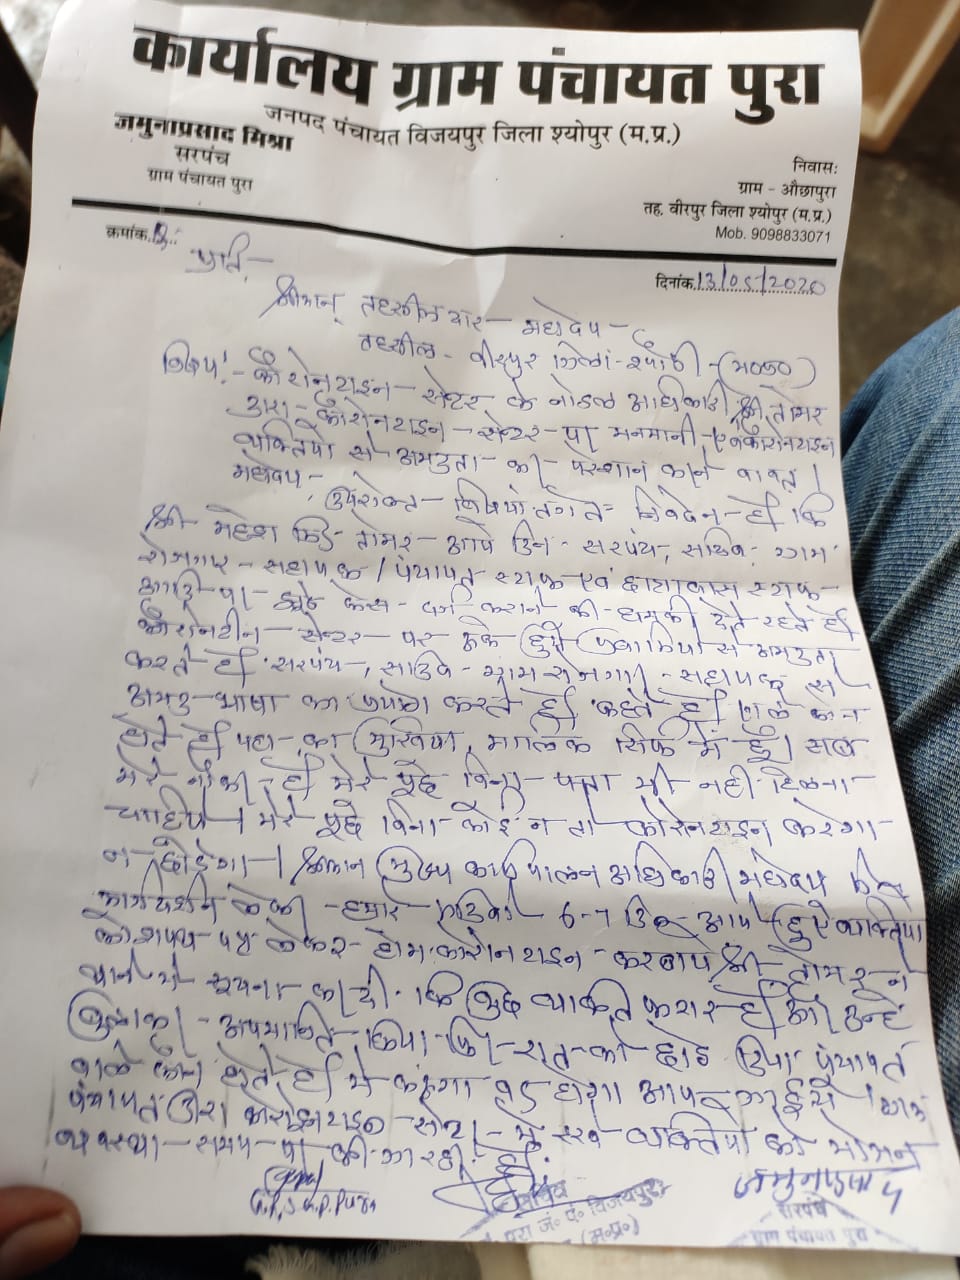 कार्यालय ग्राम पंचायत पुरा
जनपद पंचायत विजयपुर जिला श्योपुर (म.प्र.)
जमुनाप्रसाद मिश्रा
सरपंच
ग्राम पंचायत पुरा
निवासः
ग्राम - औछापुरा
तह. वीरपुर जिला श्योपुर (म.प्र.)
Mob. 9098833071
क्रमांक
दिनांक 13/05/2020
प्रति,-
श्रीमान् तहसीलदार- महोदय-
तहसील- वीरपुर जिला-
विषय:- सेन्टर के नोडल अधिकारी श्री तोमर
द्वारा- सेन्टर- पर मनमानी-
व्यक्तियों से अभद्रता- कर- परेशान करने बावत्।
महोदय-,
उपरोक्त- विषयांतर्गत- निवेदन- है कि
श्री- महेश सिंह- तोमर- आये दिन- सरपंच, सचिव, ग्राम
रोजगार- सहायक / पंचायत स्टाफ- एवं छात्रावास स्टाफ-
आदि पर- झूठे केस- दर्ज कराने की- धमकी देते रहते है
सेन्टर- पर रुके हुये प्रवासियों से अभद्रता
करते है। सरपंच-, सचिव- ग्राम रोजगार- सहायक से
अभद्र- भाषा का उपयोग करते है। कहते है
होते है यहा- का मुखिया, मालिक सिर्फ में हूं। सब
मेरे नौकर- है मेरे पूछे बिना- पत्ता भी नही हिलना-
चाहिये। मेरे पूछे बिना कोई न तो करेगा-
न- छोडेगा-। श्रीमान मुख्य कार्यपालन अधिकारी महोदय
मार्गदर्शन लेकर- हमारे 6-7 दिन आये हुए व्यक्तियों
को शपथ- पत्र लेकर- होम- करवाये श्री- तोमर- ने
थाने में- सूचना- कर दी- कि कुछ व्यक्ति फरार- है और उन्हें
किया- रात- को छोड़ दिया पंचायत
वाले कौन होते है में कहूंगा वह होगा
पंचायत द्वारा सेन्टर- व्यक्तियों को भोजन
व्यवस्था- समय- पर की- जा रही है।
सचिव
पुरा जं. पं. विजयपुर
(म.प्र.)
सरपंच
ग्राम पंचायत पुरा